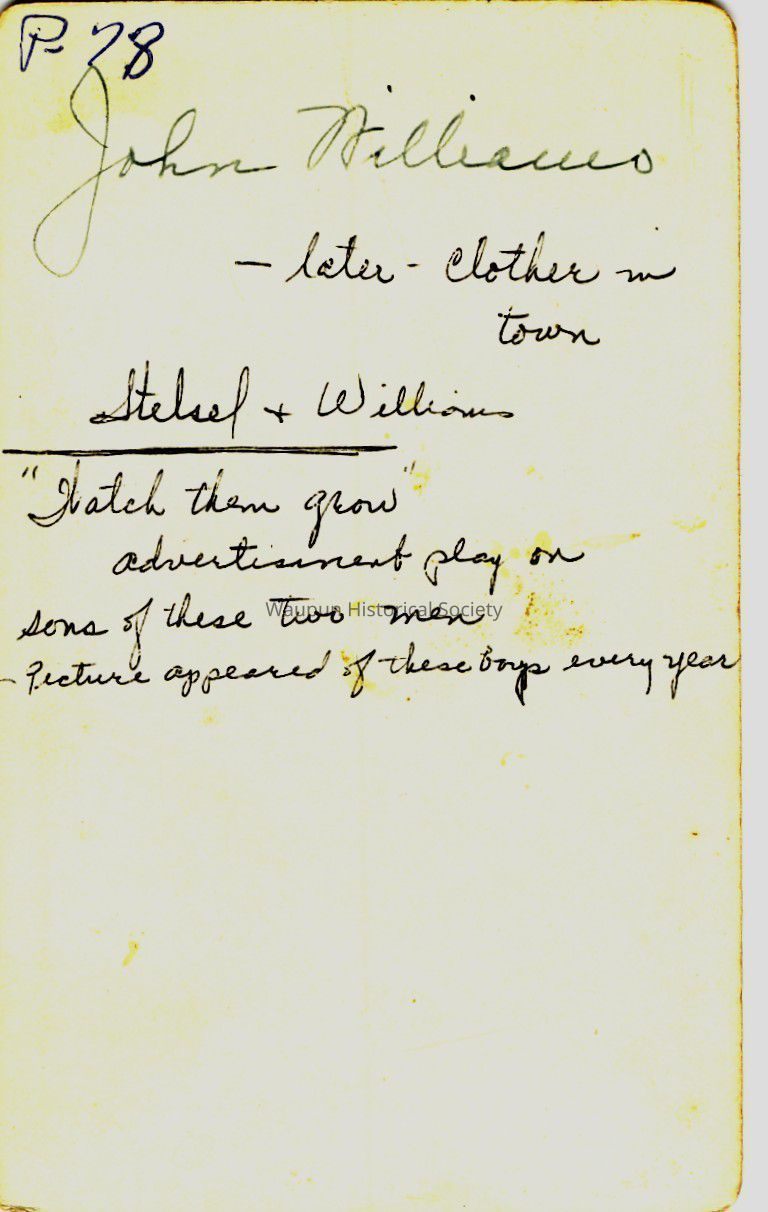 P-28
John Williams
- later - Clother in
town
Stelsel + Williams
"Watch them grow"
advertisment play on
sons of these two men
Waupun Historical Society
- Picture appeared of these boys every year